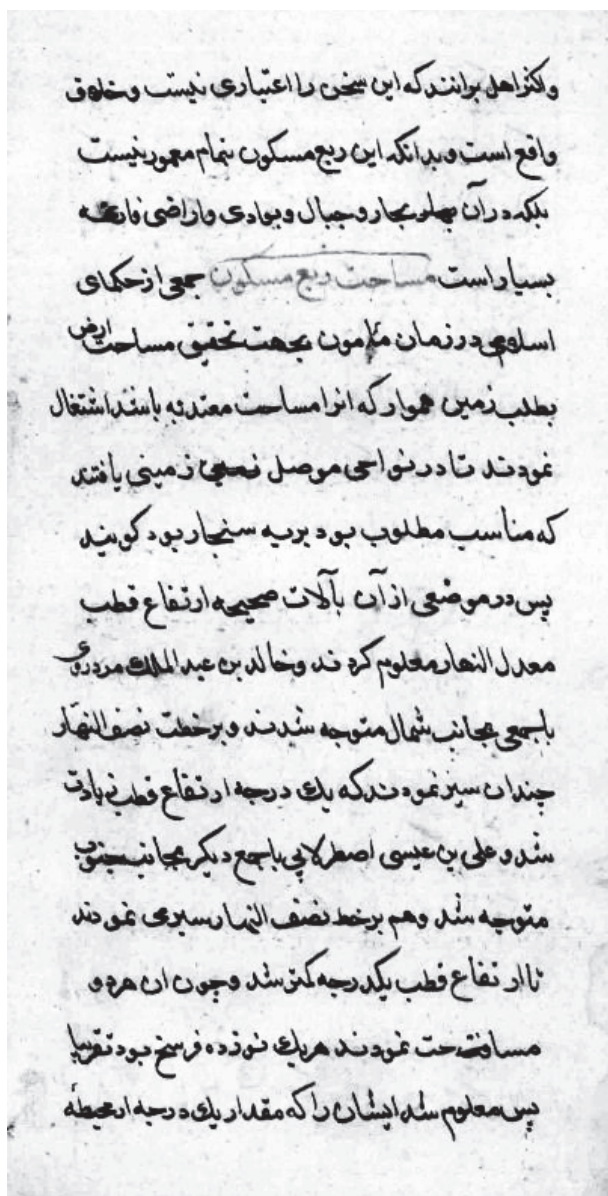 واکثر اهل برانند که این سخن را اعتباری نیست و خلاف
واقع است و بدانکه این ربع مسکون بتمام معمور نیست
بلکه در آن بحار و جبال و بوادی و اراضی
بسیار است مساحت ربع مسکون جمعی از حکمای
اسلامی در زمان مامون بجهت تحقیق مساحت ارض
بطلب زمین هموار که انرا مساحت معتد به باشد اشتغال
نمودند تا در نواحی موصل زمینی یافتند
که مناسب مطلوب بود بریه سنجار بود کویند
پس در موضعی از آن بآلات صحیحه ارتفاع قطب
معدل النهار معلوم کردند و خالد بن عبد الملك مرورودی
با جمعی بجانب شمال متوجه شدند و بر خط نصف النهار
چندان سیر نمودند که یك درجه ارتفاع قطب زیادت
شد و علی بن عیسی اصطرلابی با جمع دیکر بجانب جنوب
متوجه شد و هم بر خط نصف النهار سیری نمودند
تا ارتفاع قطب یکدرجه کمتر شد و چون ان هر دو
مسافت نمودند هر یك نوزده فرسخ بود تقریبا
پس معلوم شد ایشان را که مقدار یك درجه از محیطه